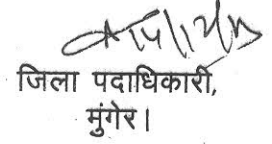 जिला पदाधिकारी,
मुंगेर।